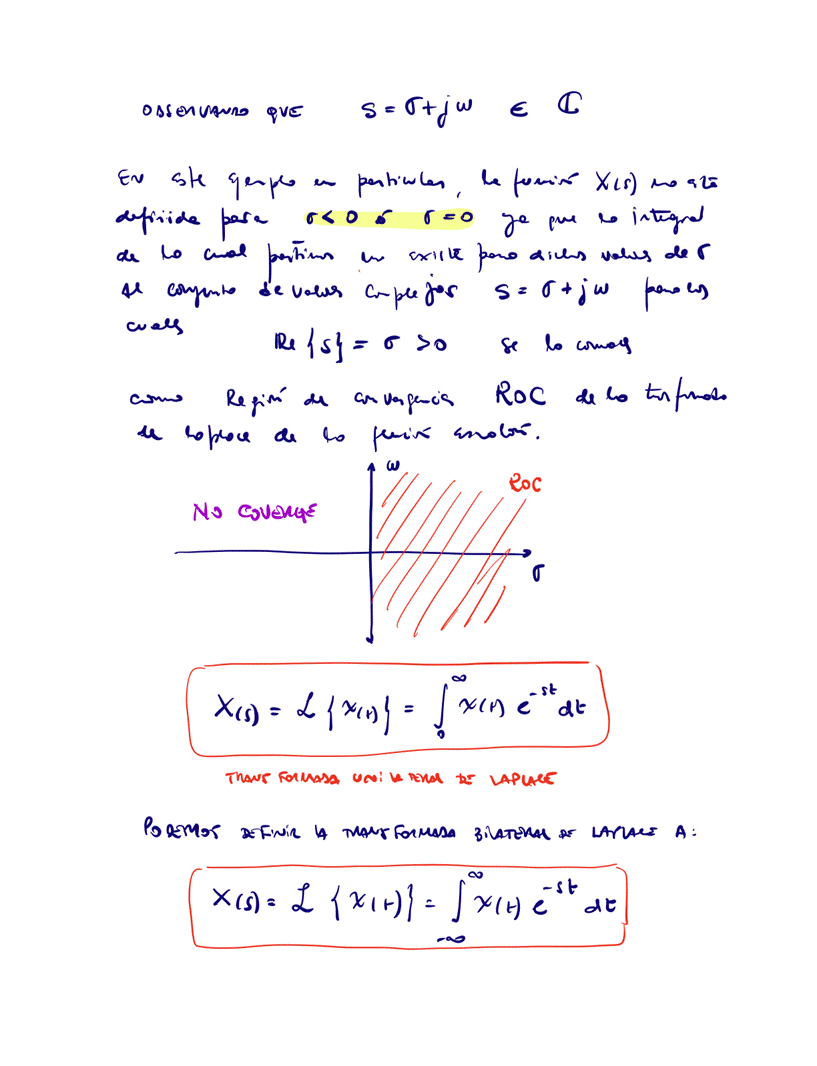 OBSERVANDO QUE S = σ + jω ∈ ℂ
En este ejemplo en particular, la función X(s) no está
definida para σ < 0 ó σ = 0 ya que la integral
de la cual partimos no existe para dichos valores de σ
al conjunto de valores complejos S = σ + jω para los
cuales
Re{s} = σ > 0 se lo conoce
como Región de convergencia ROC de la transformada
de Laplace de la función escalón.
ω
ROC
NO COVERGE
σ
X(s) = ℒ{x(t)} = ∫₀^∞ x(t) e^{-st} dt
TRANSFORMADA UNILATERAL DE LAPLACE
PODEMOS DEFINIR LA TRANSFORMADA BILATERAL DE LAPLACE A:
X(s) = ℒ{x(t)} = ∫_{-∞}^{∞} x(t) e^{-st} dt